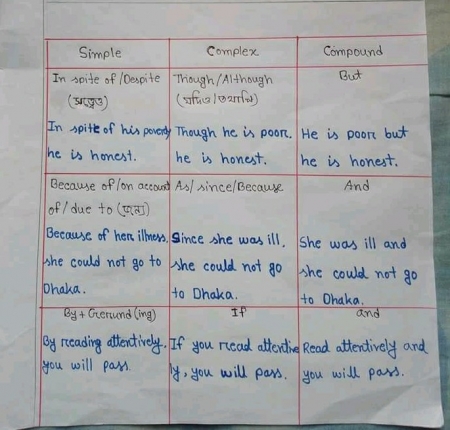 Simple
Complex
Compound
In spite of/Despite
(সত্ত্বেও)
In spite of his poverty
he is honest.
Though/Although
(যদিও/তথাপি)
Though he is poor.
he is honest.
But
He is poor but
he is honest.
Because of/on account
of/due to (জন্য)
Because of her illness,
she could not go to
Dhaka.
As/since/Because
Since she was ill,
she could not go
to Dhaka.
And
She was ill and
she could not go
to Dhaka.
By+Gerund (ing)
By reading attentively,
you will pass.
If
If you read attentive
ly, you will pass.
and
Read attentively and
you will pass.